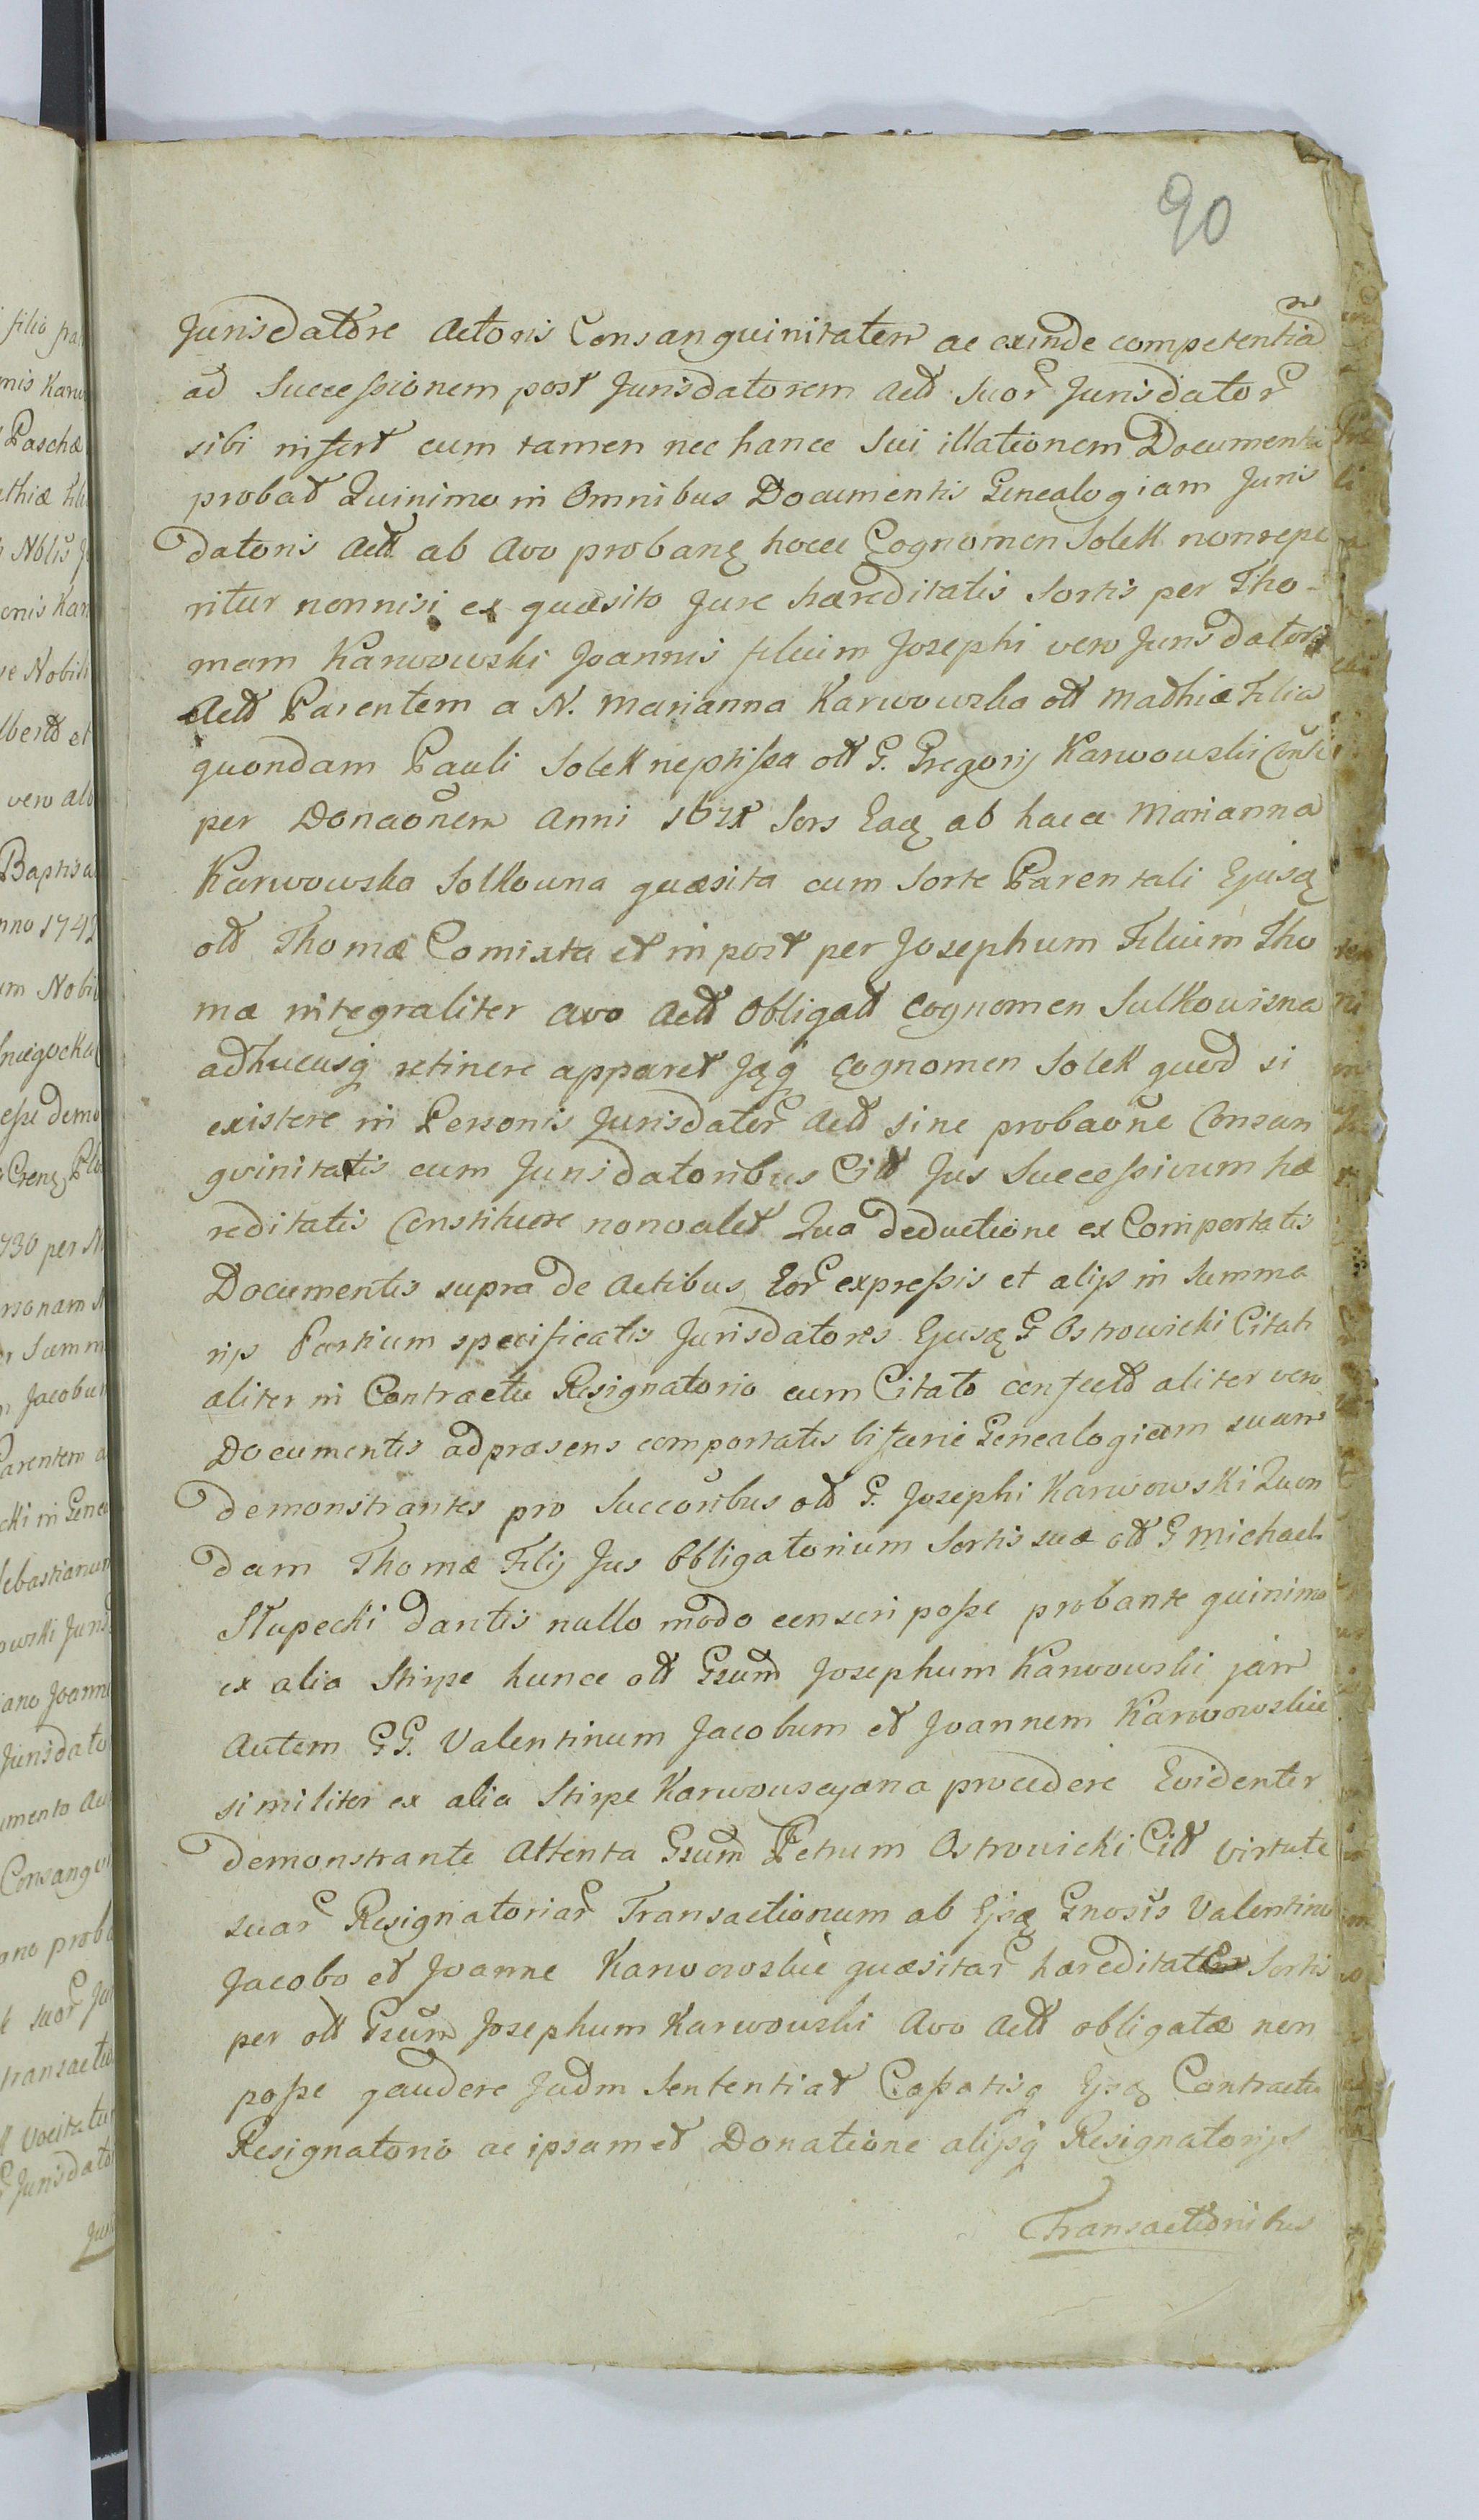 90
Jurisdatore Actoris Consanguinitatem ac exinde competentiam
ad Successionem post Jurisdatorem Actt suor Jurisdator
sibi infert cum tamen nec hance sui illationem Documentis
probat Quinimo in Omnibus Documentis Genealogiam Juris
datoris Actt ab Avo probanq hocce Cognomen Solek nonrepe
ritur nonnisi ex quæsito Jure hæreditatis Sortis per Tho-
mam Karwowski Joannis filium Josephi vero Jurisdatoris
Actt Parentem a N. Marianna Karwowska olt Mathiæ Filia
quondam Pauli Solek neptissa olt G. Gregorij Karwowski
per Donaonem Anni Sors Eaq ab hacce Marianna
Karwowska Solkowna quæsita cum Sorte Parentali Ejusq
olt Thomæ Comixta et inpost per Josephum Filium Tho
mæ integraliter Avo Actt Obligatt Cognomen Sulkowizna
adhucusq retinere apparet Jaq cognomen Solek quod si
existere in Personis Jurisdator Actt sine probaone Consan
gvinitatis cum Jurisdatoribus Citt Jus Successivum hæ
reditatis Constituere nonvalet Qua deductione ex Comportatis
Documentis supra de Actibus Eor expressis et alijs in Summa
rijs Partium specificatis Jurisdatores Ejusq G Ostrowicki Citati
aliter in Contractu Resignatorio cum Citato confectt aliter vero
Documentis adpræsens comportatis bifarie Genealogiam suam
demonstrantes pro Succoribus olt G. Josephi Karwowski Quon
dam Thomæ Filij Jus Obligatorium Sortis suæ olt G Michaeli
Słupecki dantis nullo modo censeri posse probante quinimo
ex alia Stirpe hunce olt Gsum Josephum Karwowski jam
Autem GG. Valentinum Jacobum et Joannem Karwowskie
similiter ex alia Stirpe Karwowscyana procedere Evidenter
demonstrante Attenta Gsum Petrum Ostrowicki Citt virtute
suar Resignatoriar Transactionum ab Ejsq Gnosis Valentino
Jacobo et Joanne Karwowskie quæsitar hæreditate Sortis
per olt Gsum Josephum Karwowski Avo Actt obligatæ non
posse gaudere Judm Sententiat Cassatisq Ejsq Contractu
Resignatorio ac ipsamet Donatione alijsq Resignatorijs
Transactionibus